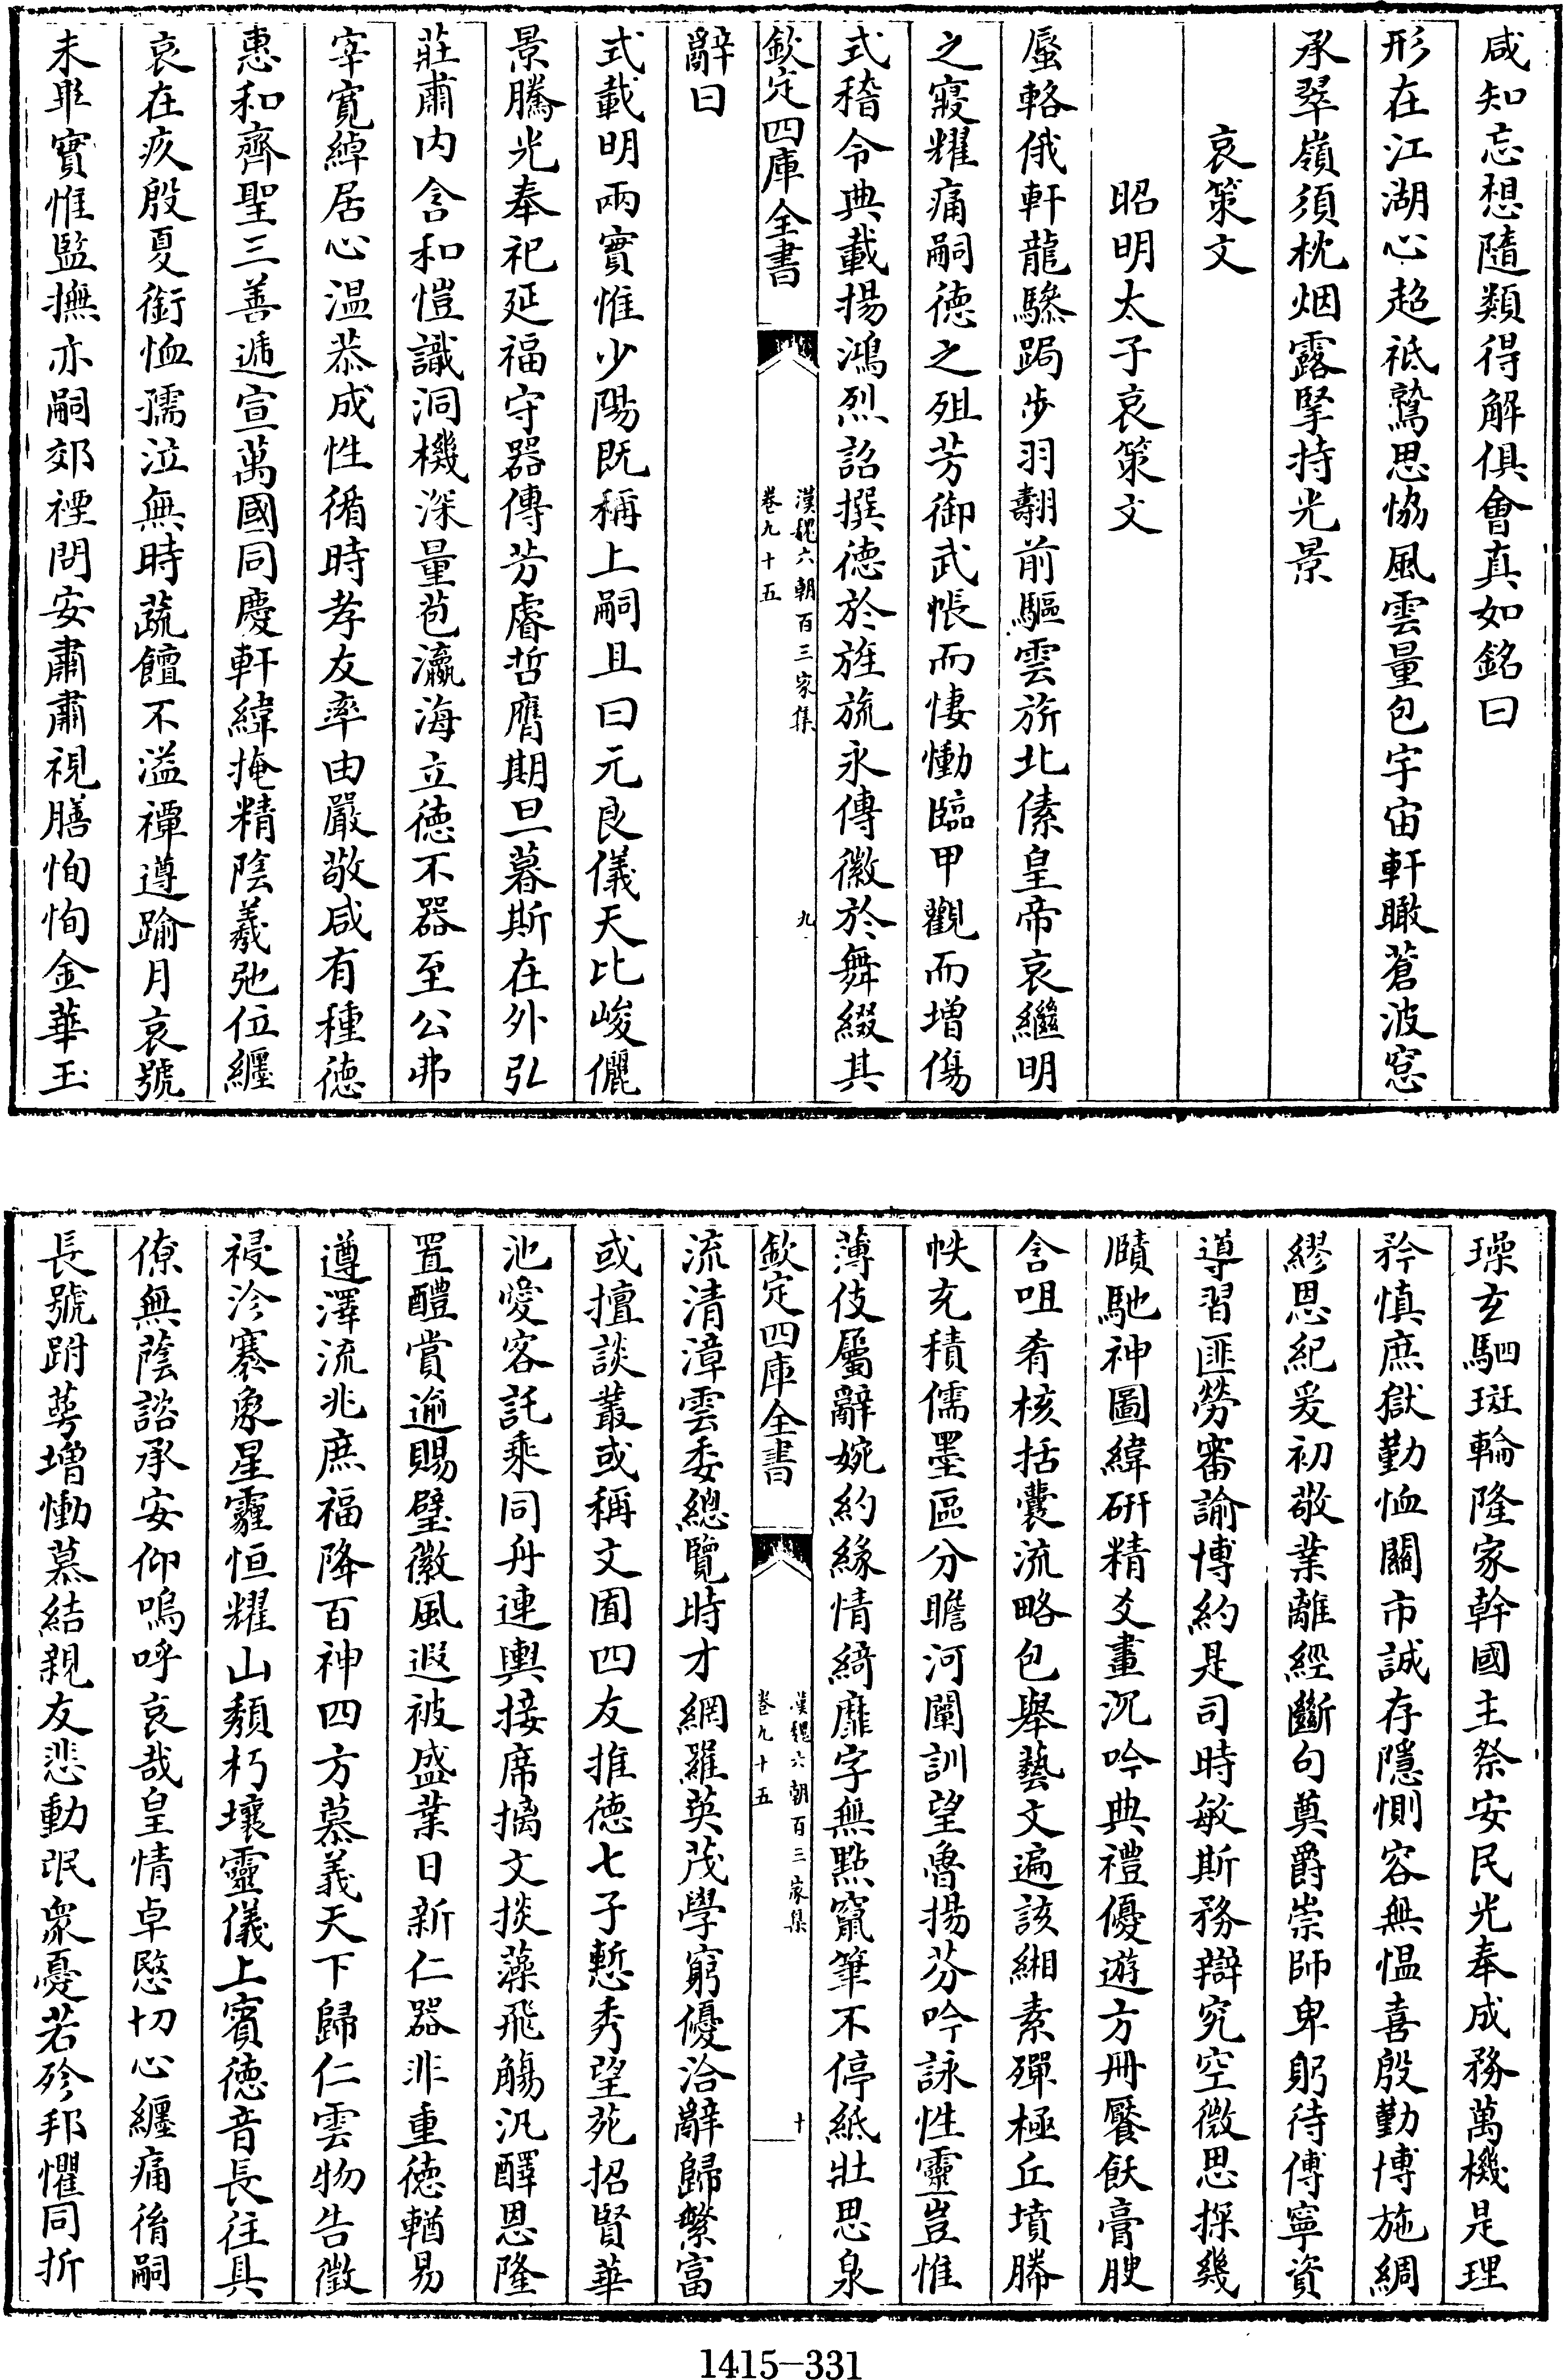 咸知忘想隨類得解俱會真如銘曰
形在江湖心超祗鷲思協風雲量包宇宙軒瞰蒼波窓
承翠嶺須枕烟露擥持光景
哀策文
昭明太子哀策文
蜃輅俄軒龍驂跼步羽翿前驅雲旂北傃皇帝哀繼明
之寢耀痛嗣徳之殂芳御武帳而悽慟臨甲觀而增傷
式稽令典載揚鴻烈詔撰徳於旌旒永傳徽於舞綴其
欽定四庫全書
漢魏六朝百三家集
卷九十五
九
辭曰
式載明兩實惟少陽既稱上嗣且曰元良儀天比峻儷
景騰光奉祀延福守器傳芳睿哲膺期旦暮斯在外弘
莊肅内含和愷識洞機深量苞瀛海立徳不器至公弗
宰寛綽居心温恭成性循時孝友率由嚴敬咸有種徳
惠和齊聖三善遞宣萬國同慶軒緯掩精陰羲弛位纒
哀在疚殷憂銜恤孺泣無時蔬饘不溢禫遵踰月哀號
未畢實惟監撫亦嗣郊禋問安肅肅視膳恂恂金華玉
璪玄駟斑輪隆家幹國主祭安民光奉成務萬機是理
矜慎庶獄勤恤關市誠存隱惻容無愠喜殷勤博施綢
繆恩紀爰初敬業離經斷句奠爵崇師卑躬待傅寧資
導習匪勞審諭博約是司時敏斯務辯究空微思探幾
賾馳神圖緯研精爻畫沉吟典禮優遊方冊饜飫膏腴
含咀肴核括囊流略包舉藝文遍該緗素殫極丘墳勝
帙充積儒墨區分瞻河闡訓望魯揚芬吟詠性靈豈惟
薄伎屬辭婉約緣情綺靡字無點竄筆不停紙壯思泉
欽定四庫全書
漢魏六朝百三家集
卷九十五
十
流清漳雲委總覽時才網羅英茂學窮優洽辭歸繁富
或擅談叢或稱文囿四友推徳七子慙秀望苑招賢華
池愛客託乘同舟連輿接席摛文掞藻飛觴汎醳恩隆
置醴賞逾賜璧徽風遐被盛業日新仁器非重徳輶易
遵澤流兆庶福降百神四方慕義天下歸仁雲物告徵
祲沴褰象星霾恒耀山頽朽壤靈儀上賓徳音長往具
僚無䕃諮承安仰嗚呼哀哉皇情卓愍切心纒痛俏嗣
長號跗萼增慟慕結親友悲動氓衆憂若殄邦懼同折
1415-331